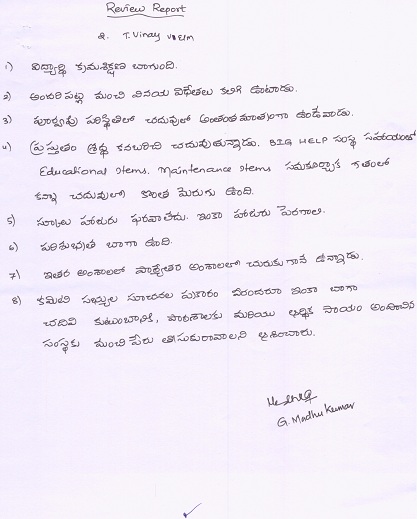 Review Report
2. T. Vinay
1) విద్యార్థి క్రమశిక్షణ బాగుంది.
2) అందరిపట్ల మంచి వినయ విధేతలు కలిగి ఉంటాడు.
3) పూర్వపు పరిస్థితిలో చదువులో అంతంత మాత్రంగా ఉండేవాడు.
4) ప్రస్తుతం శ్రద్ధ కనబరిచి చదువుతున్నాడు. BIG HELP సంస్థ సహాయంతో
Educational items. Maintenance items సమకూర్చాక గతంలో
కన్నా చదువులో కొంత మెరుగు ఉంది.
5) స్కూలు హాజరు ఫరవాలేదు. ఇంకా హాజరు పెరగాలి.
6) పరిశుభ్రత బాగా ఉంది.
7) ఇతర అంశాలలో పాఠ్యేతర అంశాలలో చురుకుగానే ఉన్నాడు.
8) కమిటి సభ్యుల సూచనల ప్రకారం వీరందరూ ఇంకా బాగా
చదివి కుటుంబానికి, పాఠశాలకు మరియు ఆర్థిక సాయం అందించిన
సంస్థకు మంచి పేరు తీసుకురావాలని ఆశించారు.
G. Madhu Kumar